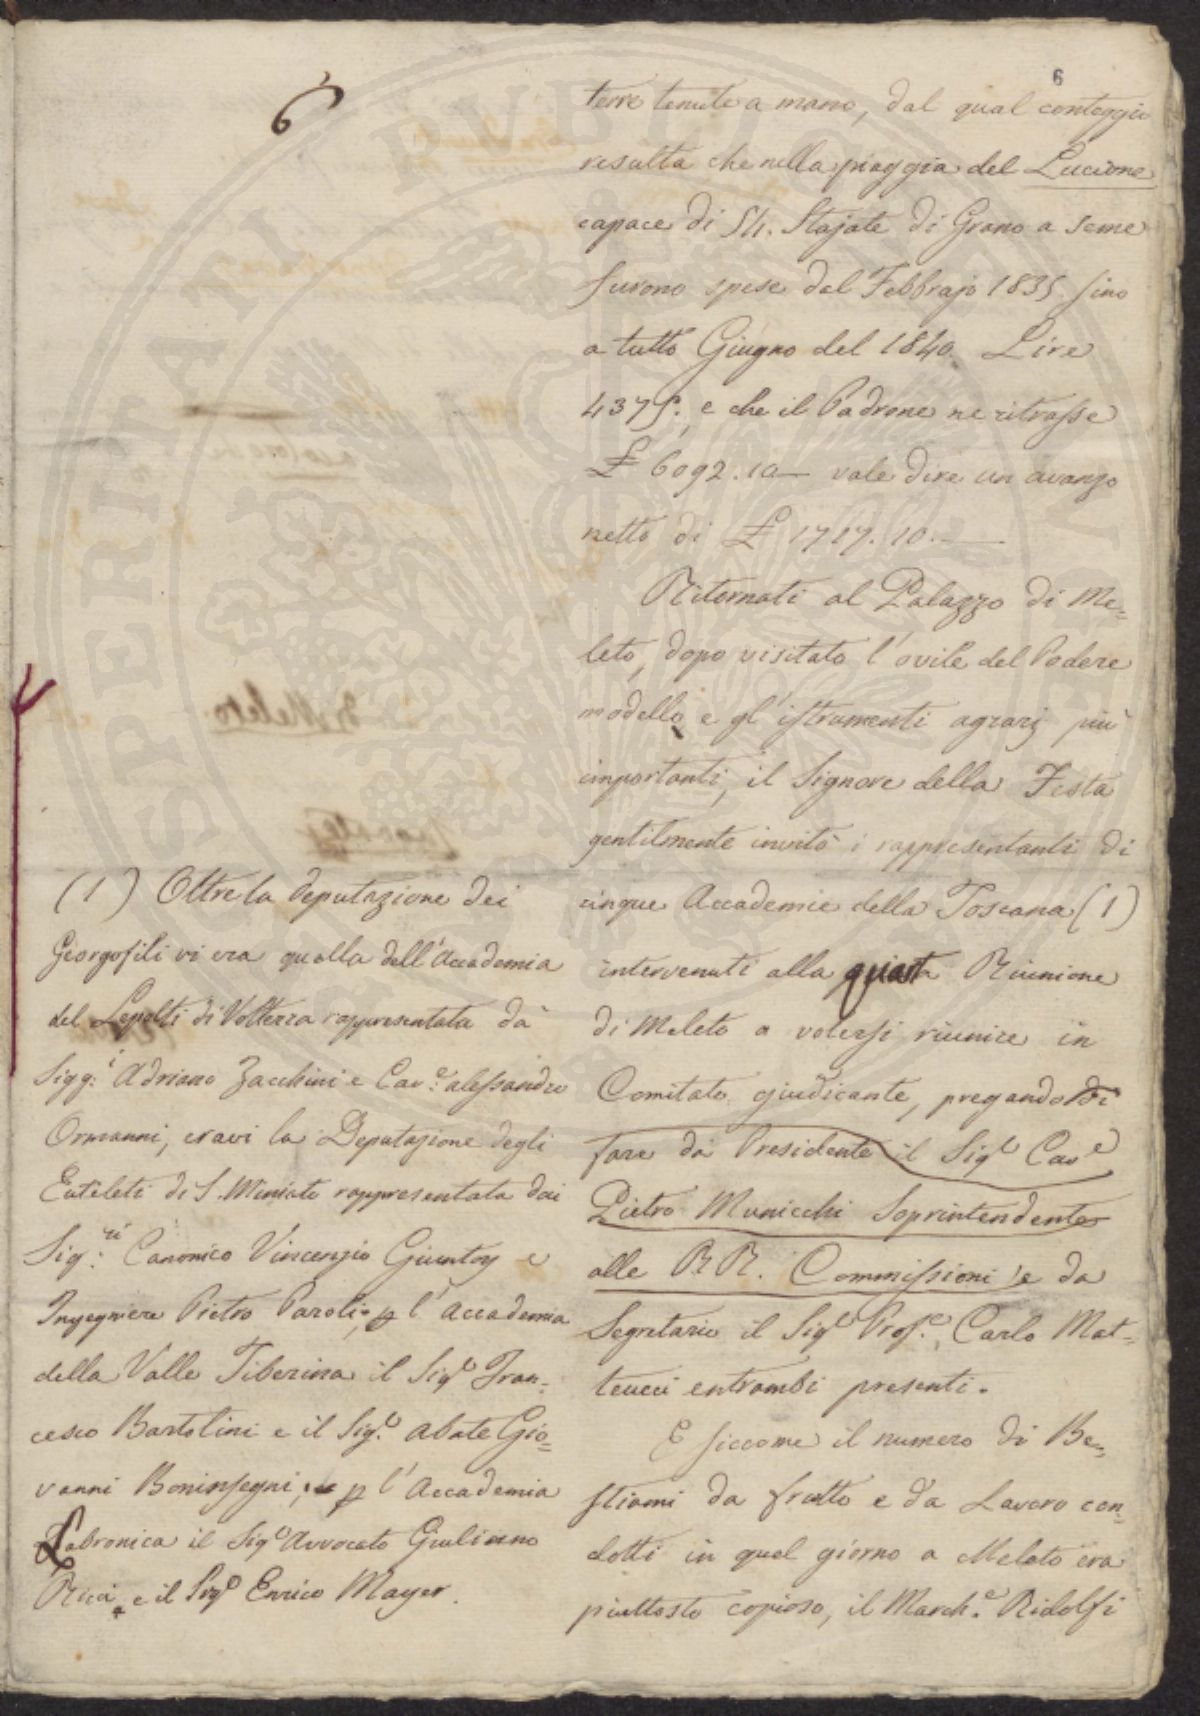 6
6
terre tenute a mano, dal qual conteggio
resulta che nella piaggia del Lucione
capace di St. Stajate di Grano a seme
furono spese dal Febbrajo 1835 sino
a tutto Giugno del 1840. Lire
4375. e che il Padrone ne ritrasse
£ 6092.10— vale dire un avanzo
netto di £ 1717.10.—
Ritornati al Palazzo di Me=
leto, dopo visitato l'ovile del Podere
modello e gl'istrumenti agrarj più
importanti, il Signore della Festa
gentilmente invitò i rappresentanti di
cinque Accademie della Toscana (1)
intervenuti alla quarta Riunione
di Meleto a volersi riunire in
Comitato giudicante, pregando di
fare da Presidente il Sigre Cave
Pietro Municchi Soprintendente
alle RR. Commissioni e da
Segretario il Sige Profe. Carlo Mat=
teucci entrambi presenti.
E siccome il numero di Be=
stiami da frutto e da Lavoro con=
dotti in quel giorno a Meleto era
piuttosto copioso, il March.e Ridolfi
(1) Oltre la Deputazione dei
Georgofili vi era quella dell'Accademia
dei Sepolti di Volterra rappresentata da
Sigg:i Adriano Zacchini e Cav.e Alessandro
Ormanni, eravi la Deputazione degli
Euteleti di S. Miniato rappresentata dai
Sig:ri Canonico Vincenzio Giuntoj e
Ingegnere Pietro Paroli; p l'Accademia
della Valle Tiberina il Sige Fran=
cesco Bartolini e il Sig.e Abate Gio=
vanni Boninsegni; p l'Accademia
Labronica il Sige Avvocato Giuliano
Ricci, e il Sige Enrico Mayer.